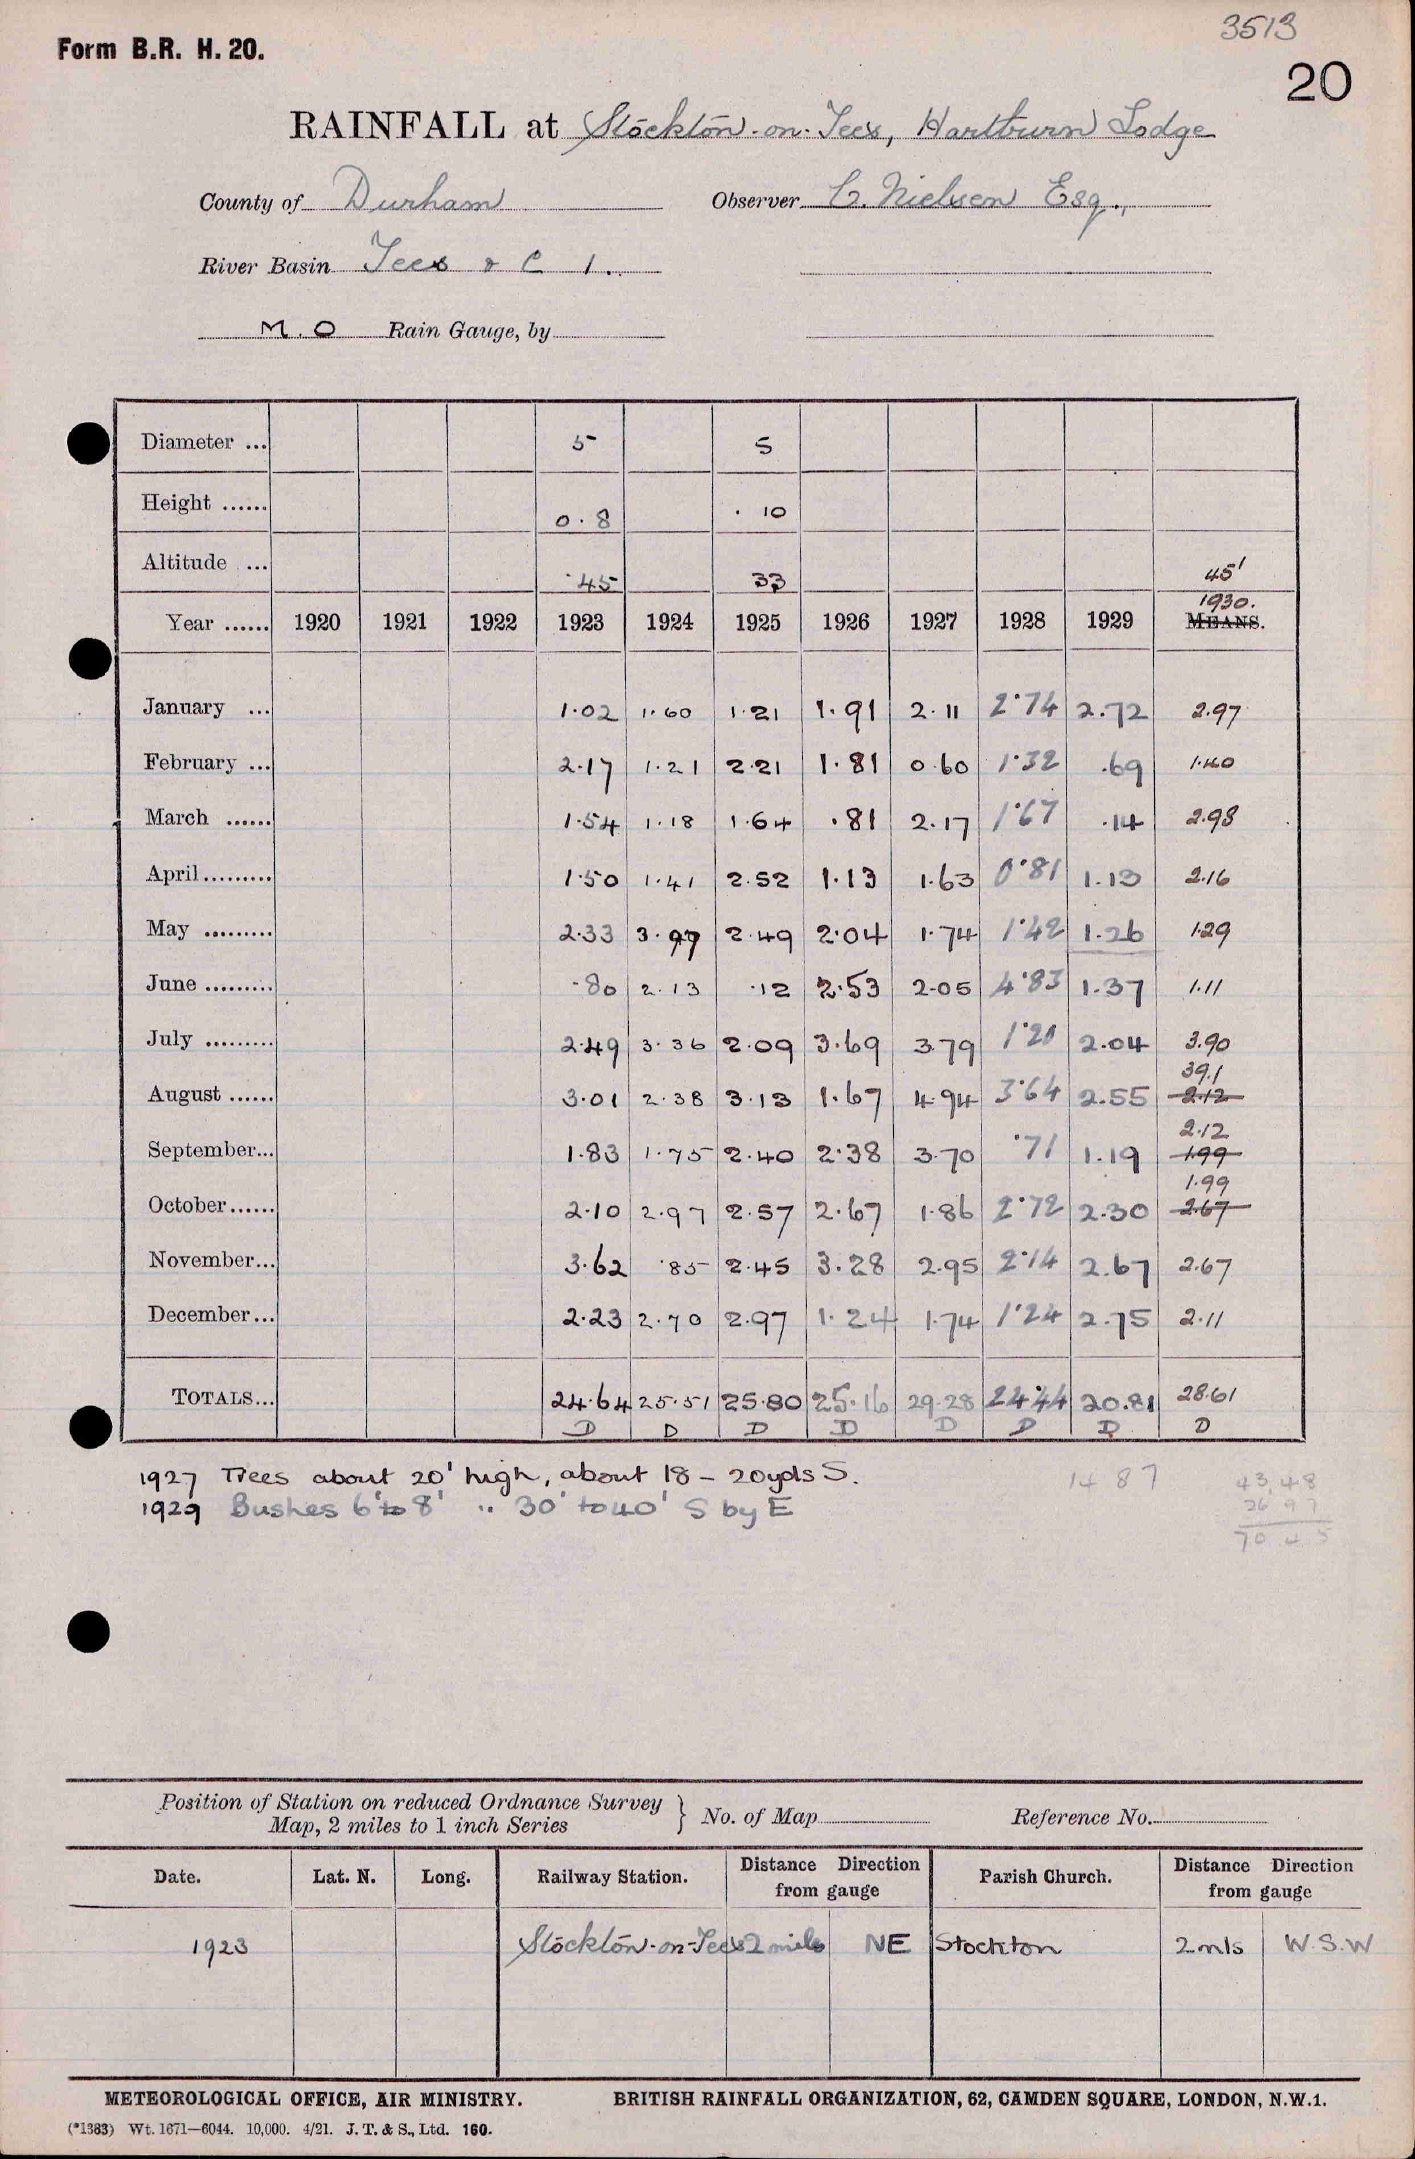 3513
Form B.R. H. 20.
20
RAINFALL at Stockton-on-Tees, Hartburn Lodge
County of Durham Observer C. Nielsen Esq.,
River Basin Tees & C 1.
M.O Rain Gauge, by
Diameter ... 5 5
Height ...... 0.8 . 10
Altitude ... 45 33 45'
1930.
Year ...... 1920 1921 1922 1923 1924 1925 1926 1927 1928 1929 MEANS.
January ... 1.02 1.60 1.21 1.91 2.11 2.74 2.72 2.97
February ... 2.17 1.21 2.21 1.81 0.60 1.32 .69 1.40
March ...... 1.54 1.18 1.64 .81 2.17 1.67 .14 2.98
April......... 1.50 1.41 2.52 1.13 1.63 0.81 1.13 2.16
May ......... 2.33 3.97 2.49 2.04 1.74 1.42 1.26 1.29
June ......... .80 2.13 .12 2.53 2.05 4.83 1.37 1.11
July ......... 2.49 3.36 2.09 3.69 3.79 1.20 2.04 3.90
39.1
August ...... 3.01 2.38 3.13 1.67 4.94 3.64 2.55 2.12
2.12
September... 1.83 1.75 2.40 2.38 3.70 .71 1.19 1.99
1.99
October...... 2.10 2.97 2.57 2.67 1.86 2.72 2.30 2.67
November... 3.62 .85 2.45 3.28 2.95 2.14 2.67 2.67
December... 2.23 2.70 2.97 1.24 1.74 1.24 2.75 2.11
TOTALS... 24.64 25.51 25.80 25.16 29.28 24.44 20.81 28.61
D D D D D D D D
1927 Trees about 20' high, about 18 - 20yds S. 14 87 43,48
1929 Bushes 6' to 8' " 30' to 40' S by E 26 97
70 45
Position of Station on reduced Ordnance Survey
Map, 2 miles to 1 inch Series } No. of Map Reference No.
Date. Lat. N. Long. Railway Station. Distance Direction from gauge Parish Church. Distance Direction from gauge
1923 Stockton-on-Tees 2 miles NE Stockton 2 mls W.S.W
METEOROLOGICAL OFFICE, AIR MINISTRY. BRITISH RAINFALL ORGANIZATION, 62, CAMDEN SQUARE, LONDON, N.W.1.
(*1383) Wt. 1671—6044. 10,000. 4/21. J. T. & S., Ltd. 160.